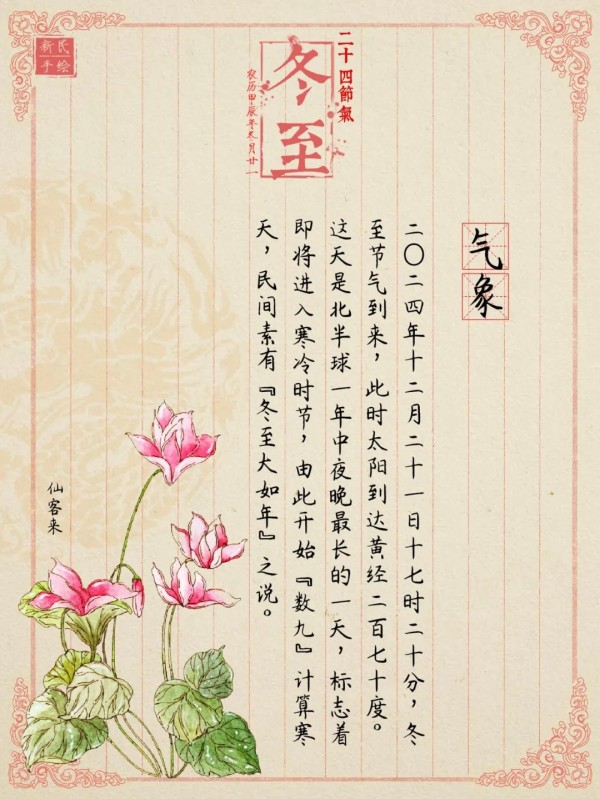 新民
手绘
二十四節氣
冬至
农历甲辰年冬月廿一
气象
二〇二四年十二月二十一日十七时二十分，冬
至节气到来，此时太阳到达黄经二百七十度。
这天是北半球一年中夜晚最长的一天，标志着
即将进入寒冷时节，由此开始『数九』计算寒
天，民间素有『冬至大如年』之说。
仙客来